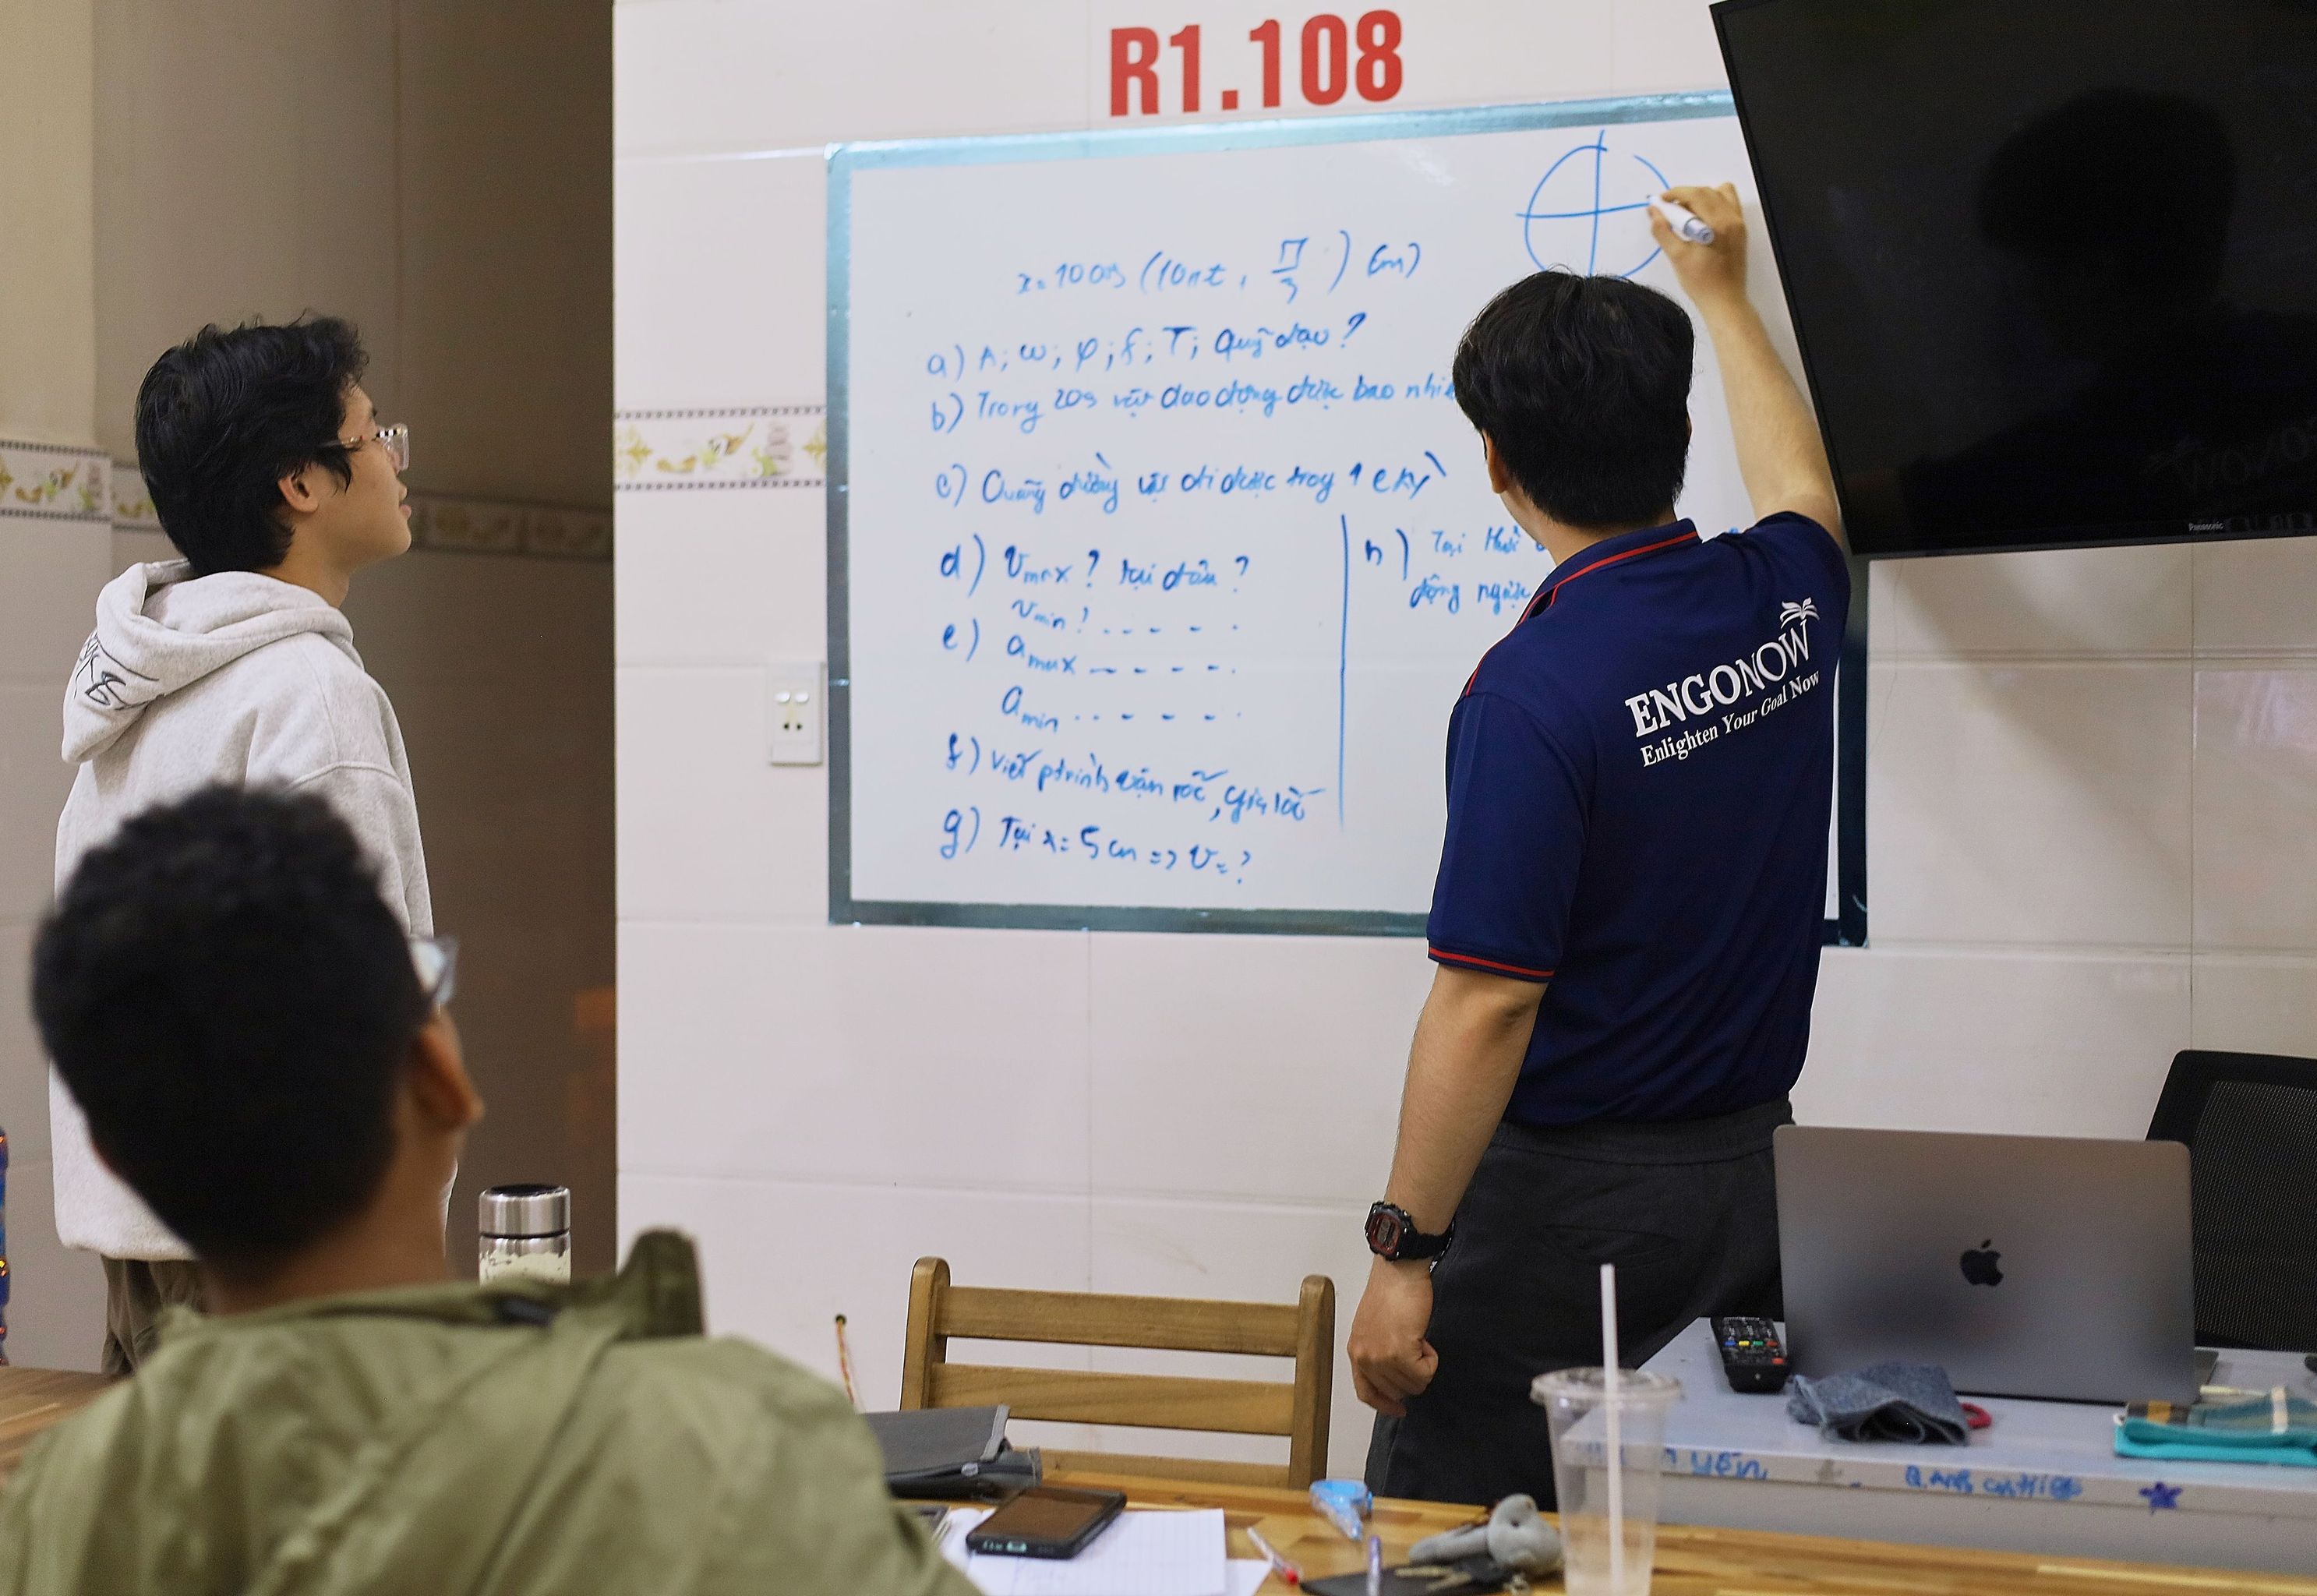 R1.108
x = 10 cos (10πt , π/3 ) (cm)
a) A; ω; φ; f; T; Quỹ đạo?
b) Trong 20s vật dao động được bao
c) Quãng đường vật đi được trong 1 ckỳ
d) vmax? tại đâu?
vmin? - - - - .
e) amax - - - - - .
amin - - - - - .
f) Viết ptrình vận tốc, gia tốc
g) Tại x = 5 cm => v = ?
h) Tại thời
động
ENGONOW
Enlighten Your Goal Now
Panasonic